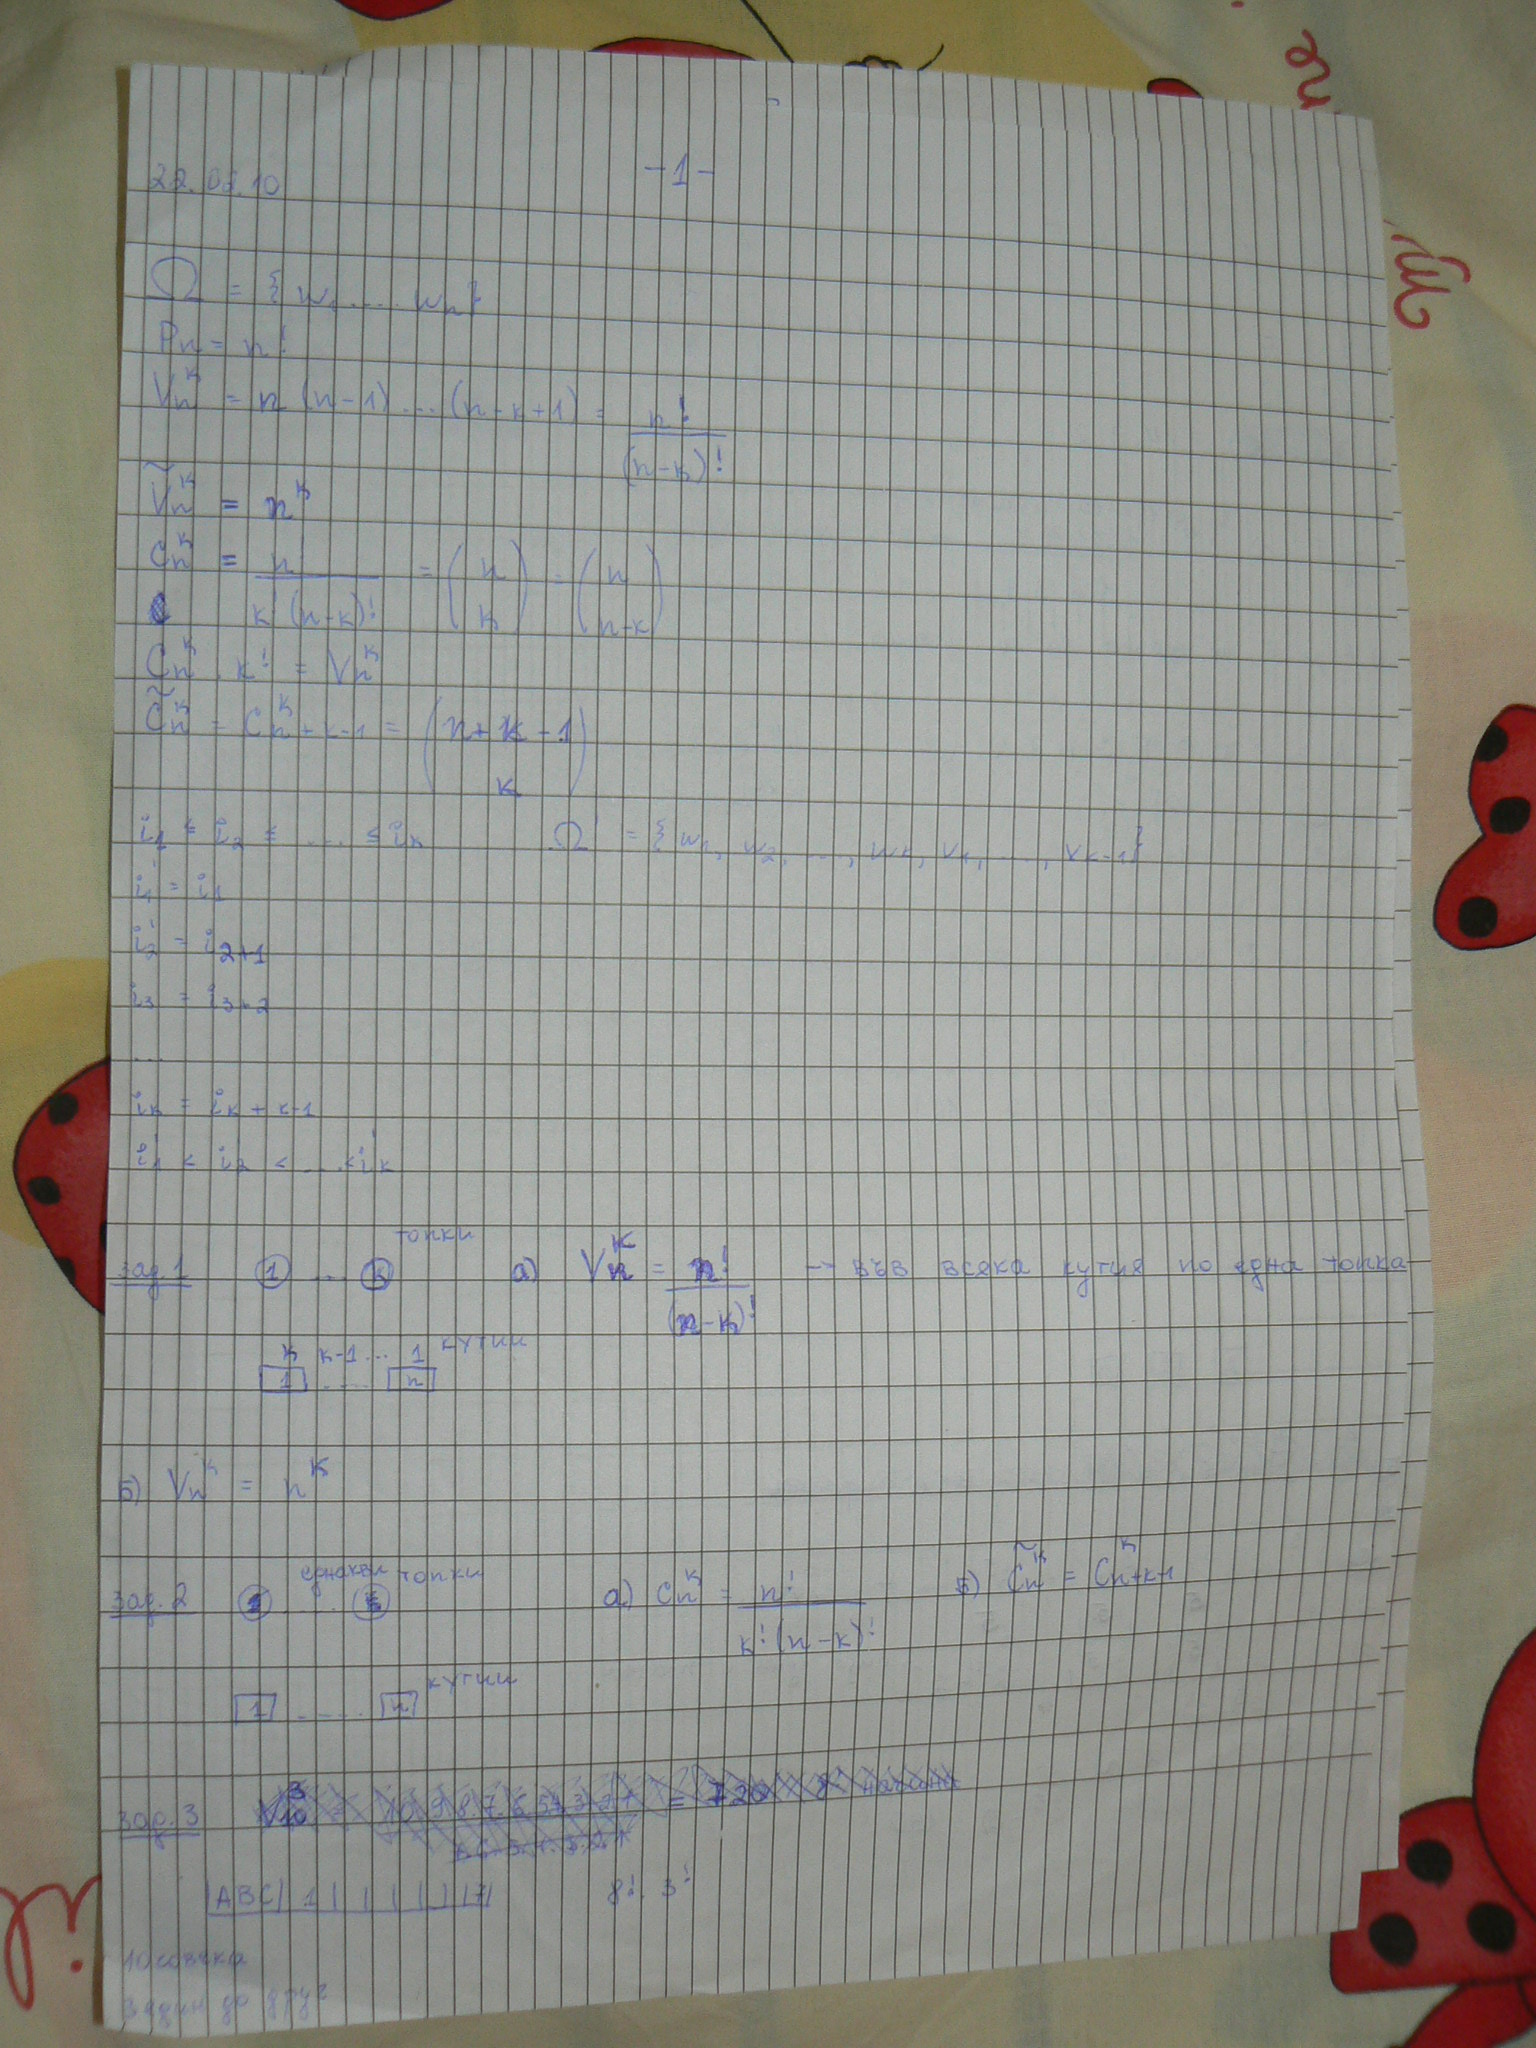 22.02.10
-1-
Ω = {w₁ .... wₙ}
Pₙ = n!
Vₙᵏ = n (n-1) ... (n-k+1) = n! / (n-k)!
Ṽₙᵏ = nᵏ
Cₙᵏ = n! / k!(n-k)! = (n k) = (n n-k)
Cₙᵏ . k! = Vₙᵏ
C̃ₙᵏ = Cᵏₙ₊ₖ₋₁ = (n+k-1 k)
i₁ ≤ i₂ ≤ .... ≤ iₖ Ω' = {w₁, w₂, ..., wₙ, v₁, ...., vₖ₋₁}
i₁' = i₁
i₂' = i₂+1
i₃' = i₃+2
...
iₖ' = iₖ + k-1
i₁' < i₂' < ... < iₖ'
зад.1 ① ... ⓚ топки а) Vₙᵏ = n! / (n-k)! → във всяка кутия по една топка
k k-1 ... 1 кутии
1 .... n
Б) Vₙᵏ = nᵏ
зад.2 еднакви топки а) Cₙᵏ = n! / k!(n-k)! Б) C̃ₙᵏ = Cᵏₙ₊ₖ₋₁
1 ..... n кутии
зад.3
|ABC| 1 | | | | | |7| 8! . 3!
10 човека
3 един до друг